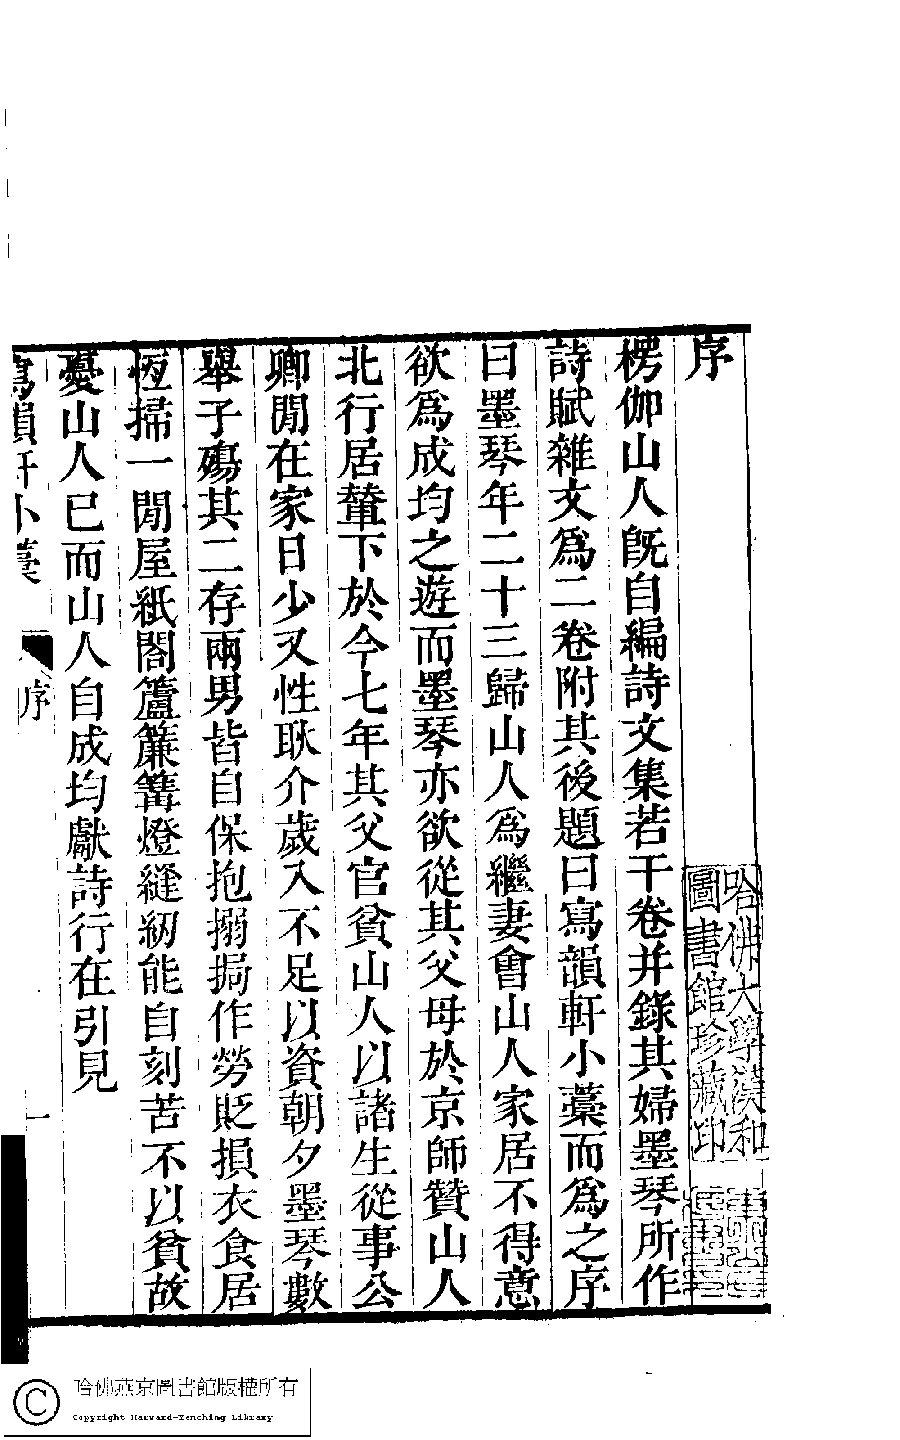 序
楞伽山人旣自編詩文集若干卷并錄其婦墨琴所作
詩賦雜文爲二卷附其後題曰寫韻軒小藁而爲之序
曰墨琴年二十三歸山人爲繼妻會山人家居不得意
欲爲成均之遊而墨琴亦欲從其父母於京師贊山人
北行居輦下於今七年其父官貧山人以諸生從事公
卿閒在家日少又性耿介歲入不足以資朝夕墨琴數
舉子殤其二存兩男皆自保抱搦挶作勞貶損衣食居
恆掃一閒屋紙閣簾簾篝燈縫紉能自刻苦不以貧故
憂山人已而山人自成均獻詩行在引見
寫韻軒小藁
序
一
哈佛大學漢和
圖書館珍藏印
哈佛燕京圖書館版權所有
Copyright Harvard-Yenching Library